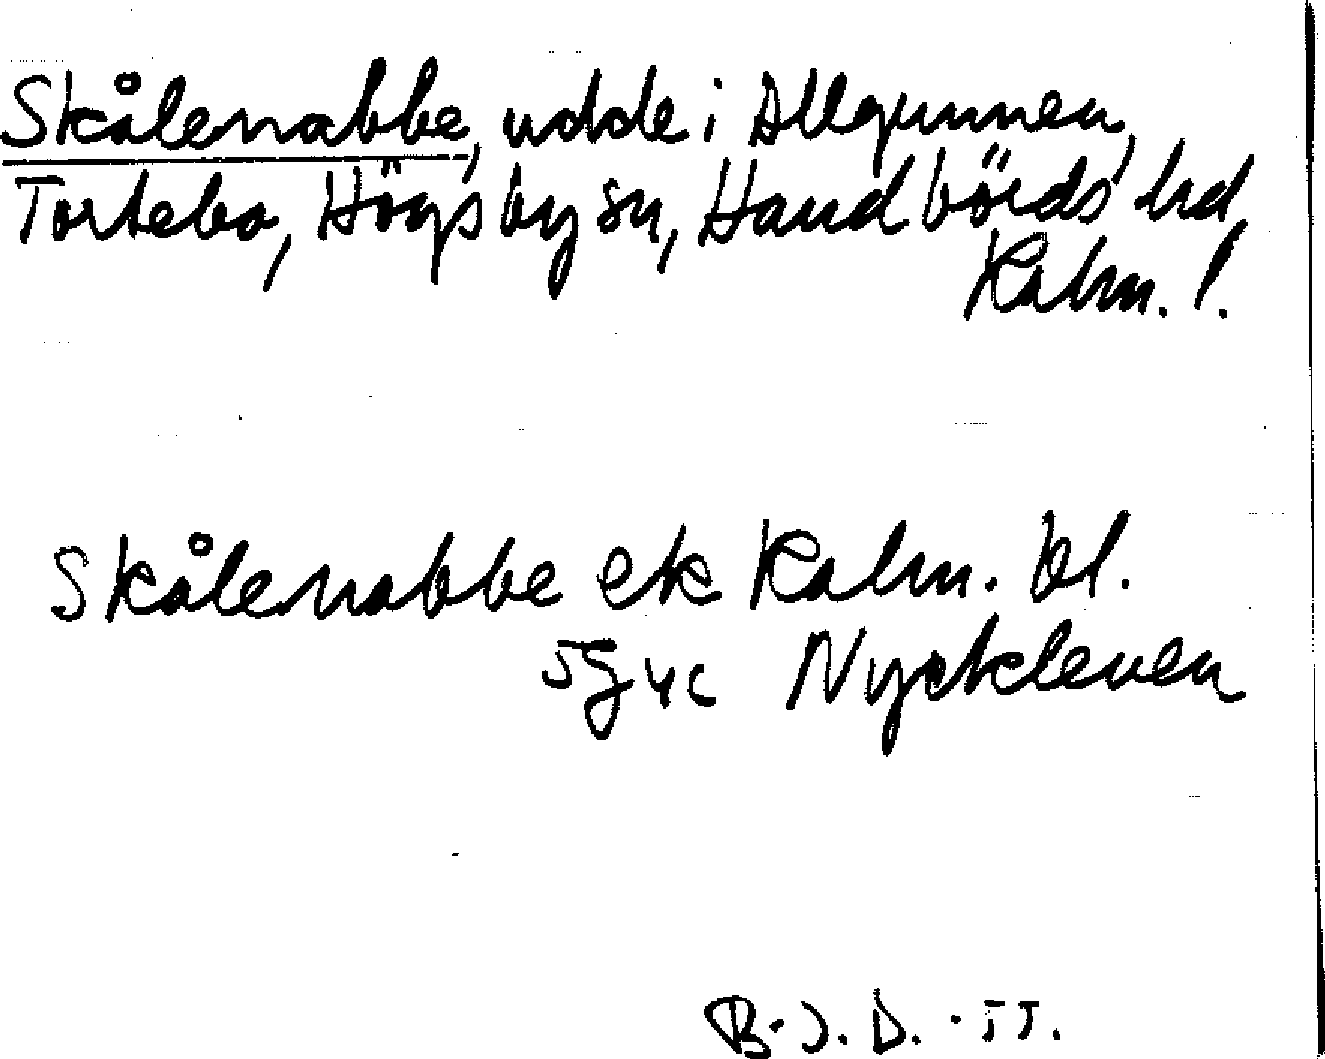 Skålenabbe, udde i Allgunnen,
Tortebo, Högsby sn, Handbörds hd,
Kalm. l.
Skålenabbe ek Kalm. bl.
5G4c Nyckleven
B.J.D. -55.